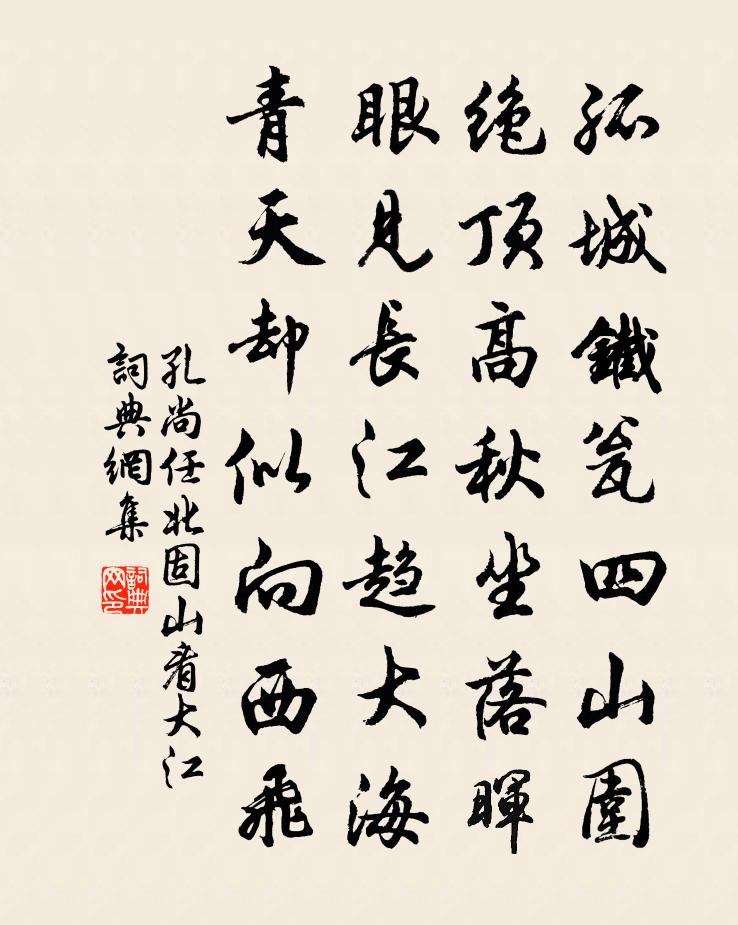 孤城鐵瓮四山圍
絶頂高秋坐落暉
眼見長江趨大海
青天却似向西飛
孔尚任北固山看大江
詞典網集
詞典網印